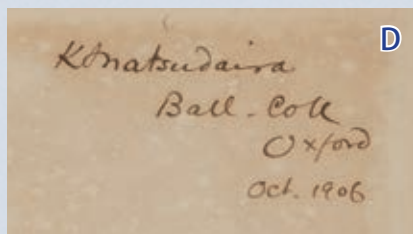 D
K Matsudaira
Ball. Coll
Oxford
Oct. 1906